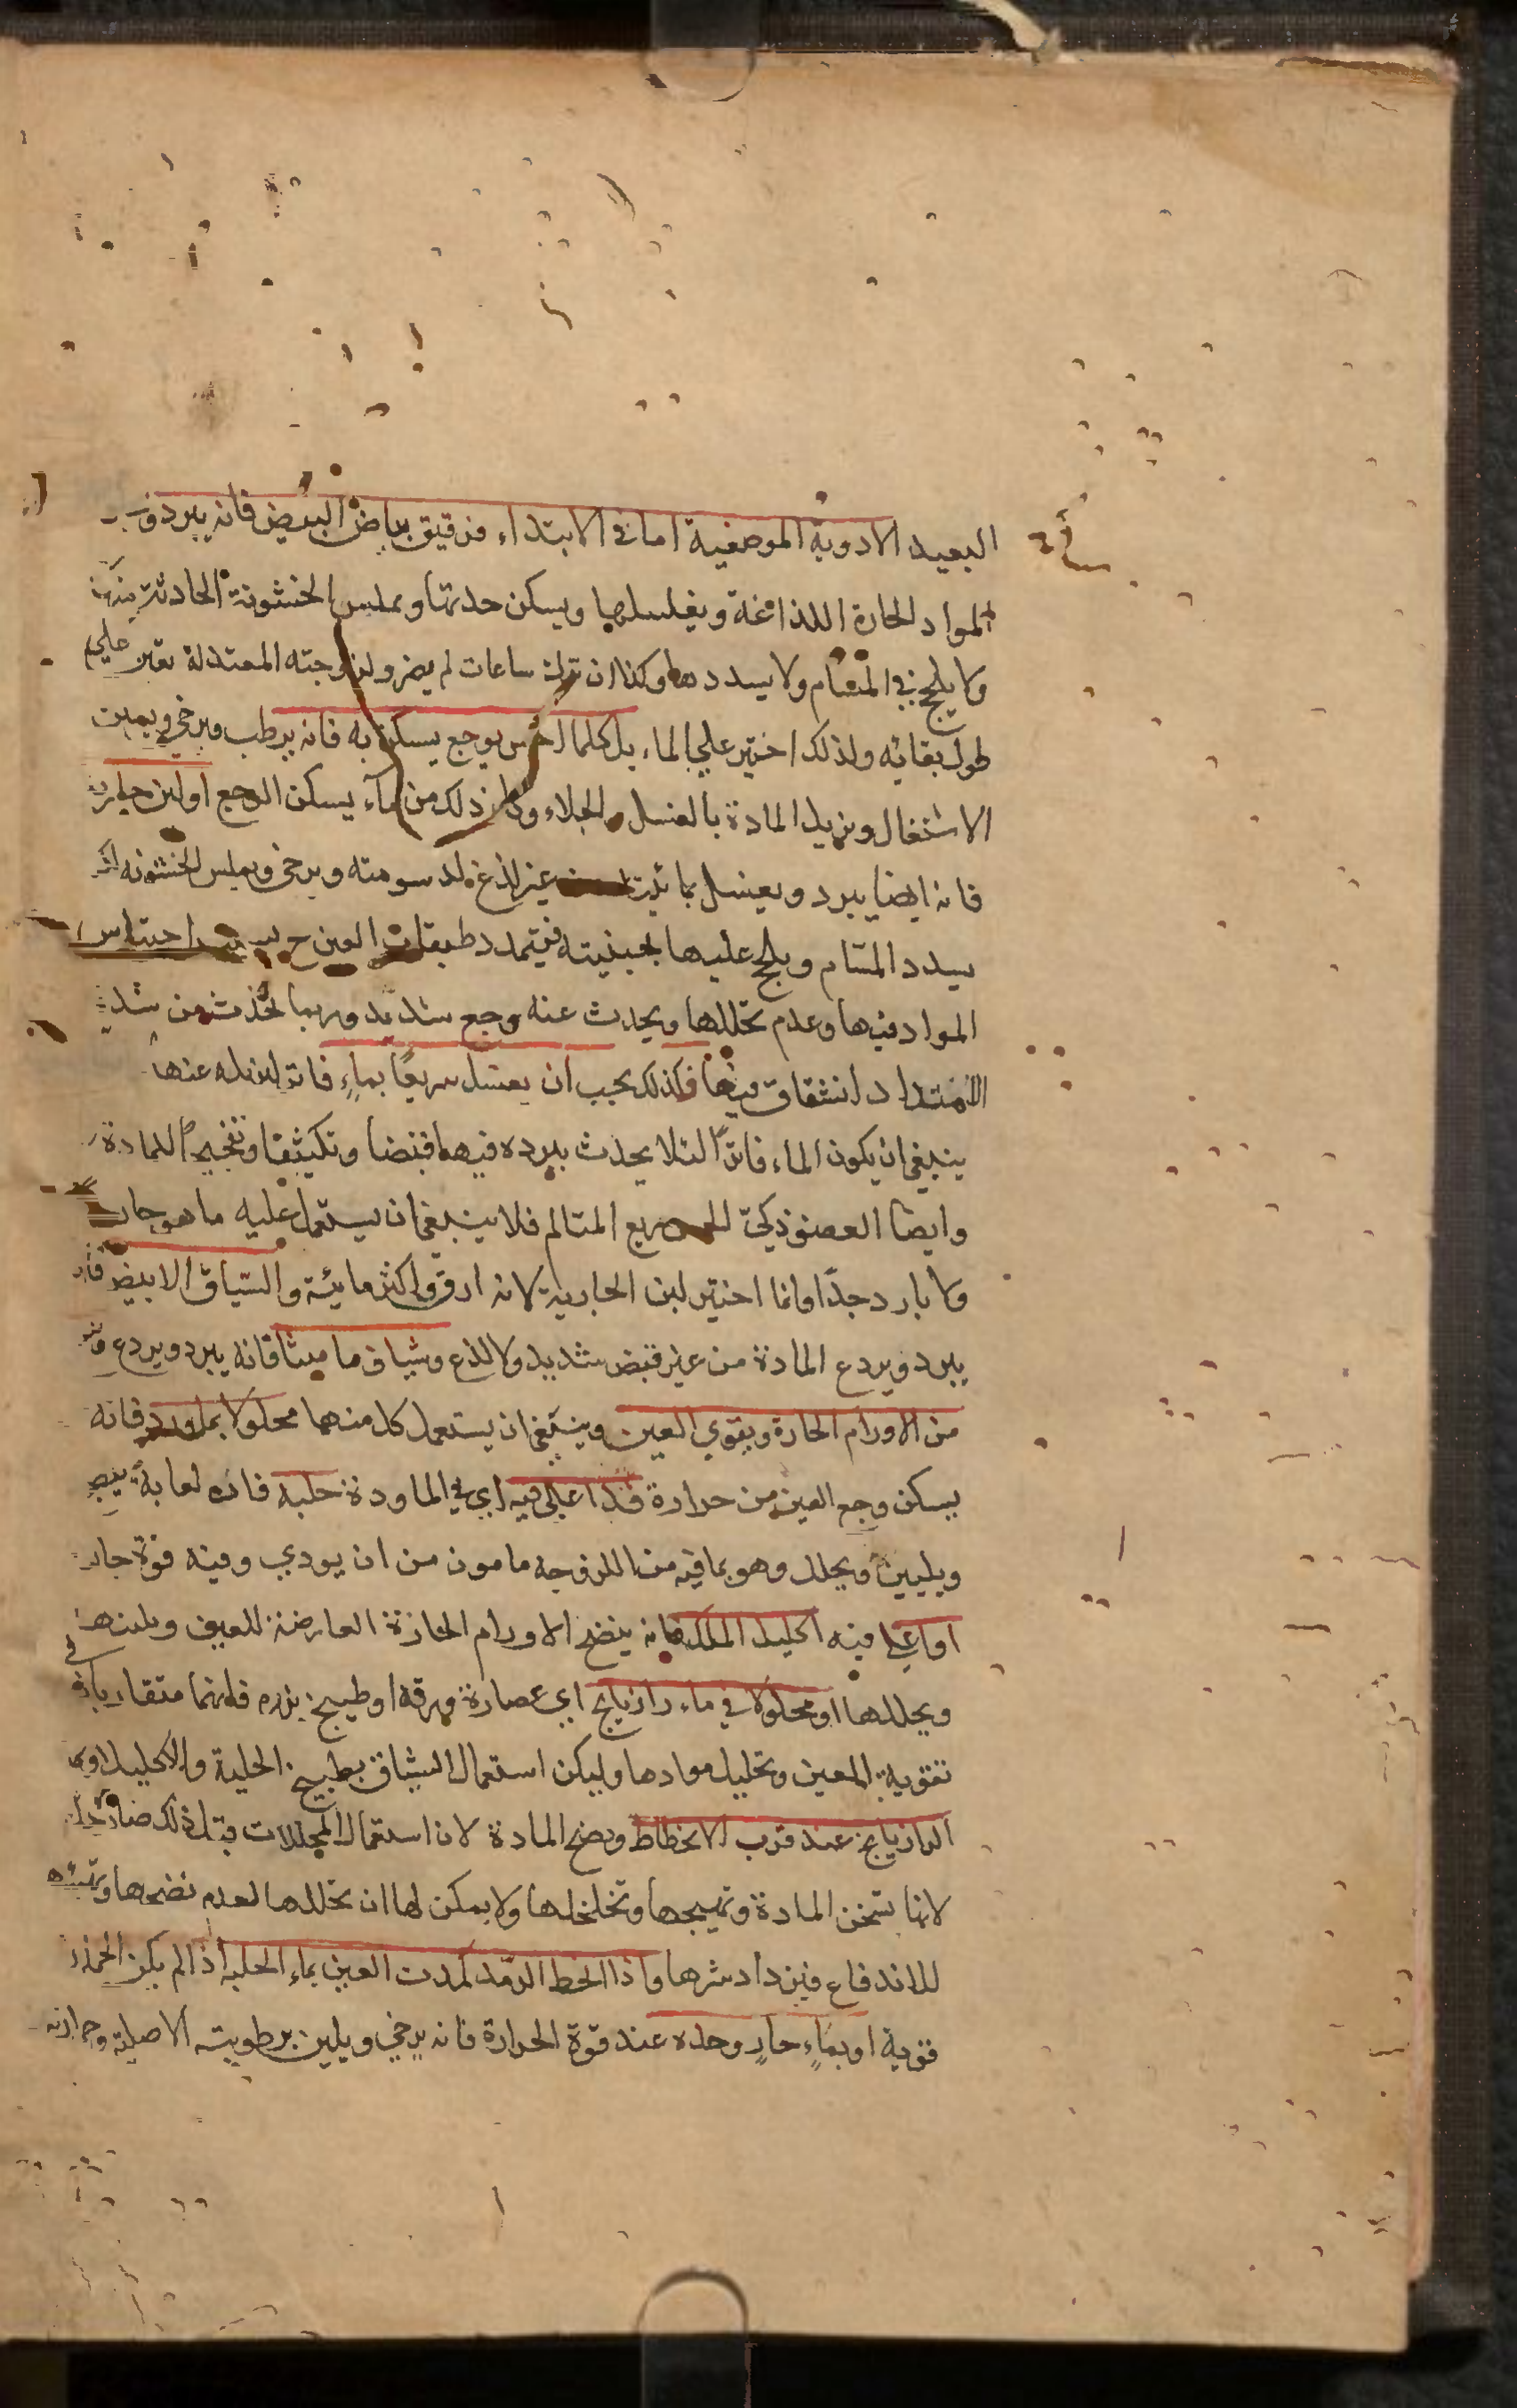 البعيد الادوية الموضعية اما في الابتداء فرقيق بياض البيض فانه يبرد
المواد الحارة اللذاعة ويغسلها ويسكن حدتها ويملس الخشونة الحادثة
ولا يلحج في المسام ولا يسددها وكذا ان ترك ساعات لم يضر ولزوجته المعتدلة تعين علي
طول بقائه ولذلك اختير علي الماء بل كلما احس بوجع يسكن به فانه يرطب ويرخي ويمين
الاشتغال ويزيل المادة بالغسل والجلاء وفاتر ذلك من ماء يسكن الوجع او لبن جارية
فانه ايضا يبرد ويغسل بمائيته غير لذع لدسومته ويرخي ويملس الخشونة
يسدد المسام ويلحج عليها بجبنيته فيتمدد طبقات العين ح احتباس
المواد فيها وعدم تحللها ويحدث عنه وجع شديد وربما يحدث من شدة
الامتداد انشقاق فيها فلذلك يجب ان يغسل سريعا بماء فاتر ليزيله عنها
ينبغي ان يكون الماء فاترا لئلا يحدث ببرده فيها قبضا وتكثيفا وتفجيجا للمادة
وايضا العضو ذكي الحس سريع المتالم فلا ينبغي ان يستعمل عليه ما هو حار
ولا بارد جدا وانما اختير لبن الجارية لانه ارق واكثر مائية والشياف الابيض فانه
يبرد ويردع المادة من غير قبض شديد ولا لذع وشياف ماميثا فانه يبرد ويردع
من الاورام الحارة ويقوي العين وينبغي ان يستعمل كل منهما محلولا بماورد فانه
يسكن وجع العين من حرارة قد اغلي فيه اي في الماورد حلبة فان لعابها ينضج
ويليين ويحلل وهو بما فيه من اللزوجه مامون من ان يودي وفيه قوة جلاء
او اغلي فيه اكليل الملك فانه ينضج الاورام الحارة العارضة للعين ويلينها
ويحللها او محلولا في ماء رازيانج اي عصارة ورقه او طبيخ بزره فانهما متقاربان في
تقوية العين وتحليل موادها وليكن استعمال الشياف بطبيخ الحلبة والاكليل او
الرازيانج عند قرب الانحطاط ونضج المادة لان استعمال المحللات قبل ذلك ضار جدا
لانها تسخن المادة وتهيجها وتخلخلها ولا يمكن لها ان تحللها لعدم نضجها وتهيئه
للاندفاع فيزداد شرها واذا انحط الرمد كمدت العين بماء الحلبة اذا لم يكن الحمرة
قوية او بماء حار وحده عند قوة الحرارة فانه يرخي ويلين برطوبته الاصلية وحرارته